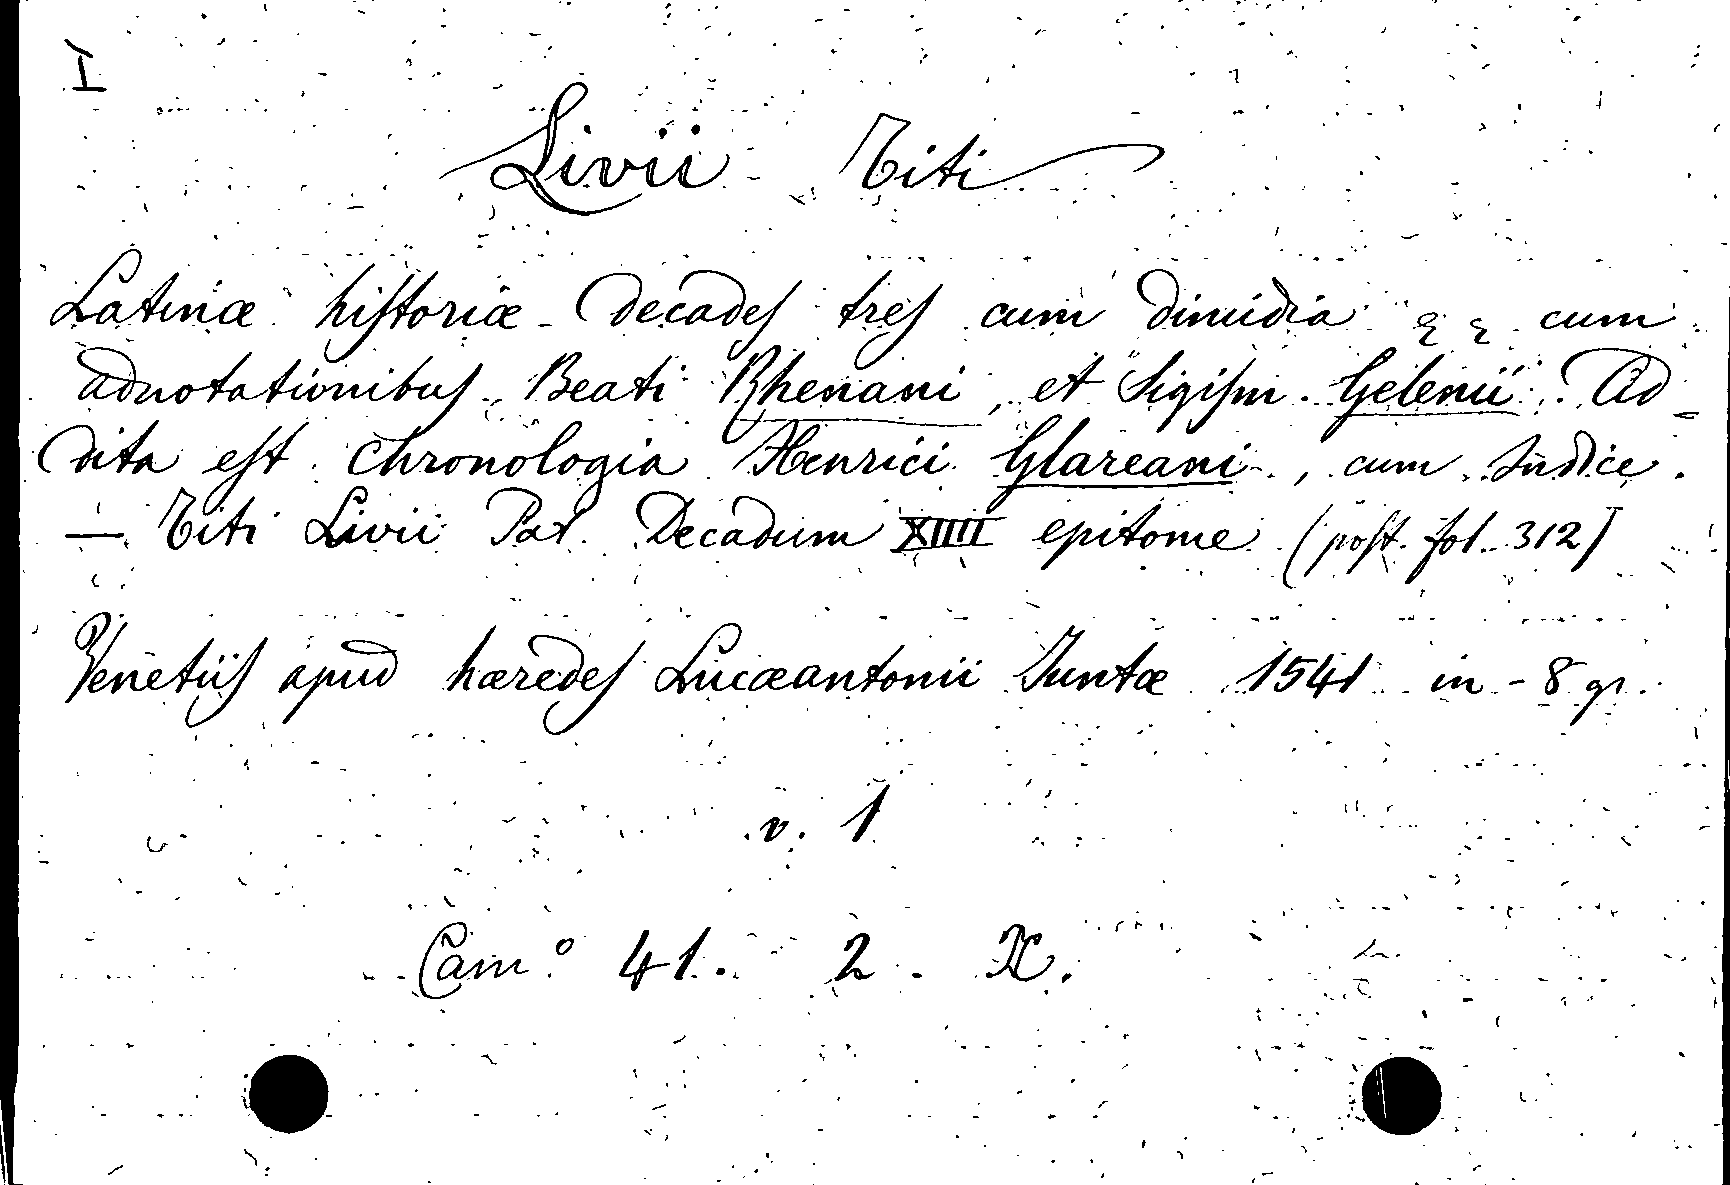 I
Livii Titi
Latinæ historiæ decades tres cum dimidia &c &c cum
adnotationibus Beati Rhenani, et Sigism. Gelenii. Ad=
dita est Chronologia Henrici Glareani, cum Indice.
— Titi Livii Pat. Decadum XIIII epitome (post fol. 312)
Venetiis apud hæredes Lucæantonii Juntæ 1541 in-8 gr.
v. 1
Cam.º 41. 2. X.